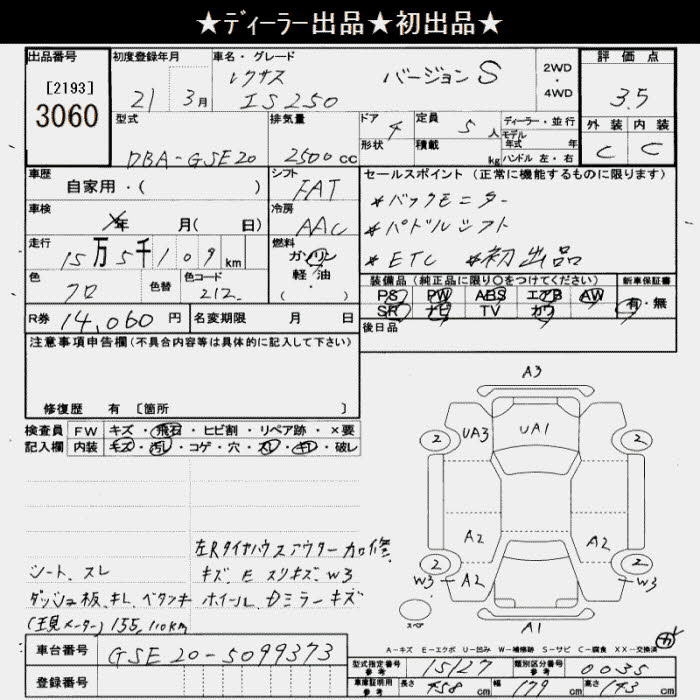 ★ディーラー出品★初出品★
出品番号
[2193]
3060
初度登録年月
21 3月
車名・グレード
レクサス
IS250
バージョンS
2WD
・
4WD
評価点
3.5
外装 内装
C C
型式
DBA-GSE20
排気量
2500cc
ドア 4
形状
定員 5人
積載 kg
ディーラー・並行
モデル
年式 年
ハンドル 左・右
車歴
自家用・( )
シフト
FAT
車検
年 月( 日)
冷房
AAC
走行
15万5千109km
燃料
ガソリン
軽・油
・( )
色
クロ
色替
色コード
212
R券 14,060円
名変期限 月 日
セールスポイント(正常に機能するものに限ります)
*バックモニター
*パドルシフト
*ETC *初出品
装備品(純正品に限り○をつけてください)
新車保証書
PS PW ABS エアB AW
SR ナビ TV カワ
有・無
後日品
注意事項申告欄(不具合内容等は具体的に記入して下さい)
修復歴 有 [箇所 ]
検査員
記入欄
FW キズ・飛石・ヒビ割・リペア跡・×要
内装 キズ・汚レ・コゲ・穴・スレ・キレ・破レ
A3
UA3 UA1
2 2
A2 A2
2 2
W3 A2 W3
A1
スペア
左Rタイヤハウスアウターカロ修
シート、スレ
キズ、E スリキズ、W3
ダッシュ板、キレ、ベタツキ
ホイール、Dミラーキズ
(現メーター)155,110km
A-キズ E-エクボ U-凹み W-補修跡 S-サビ C-腐食 XX-交換済
車台番号
GSE20-5099373
登録番号
型式指定番号
参考
15127
類別区分番号
参考
0035
車庫証明用
参考
長さ 458cm
幅 179cm
高さ 143cm